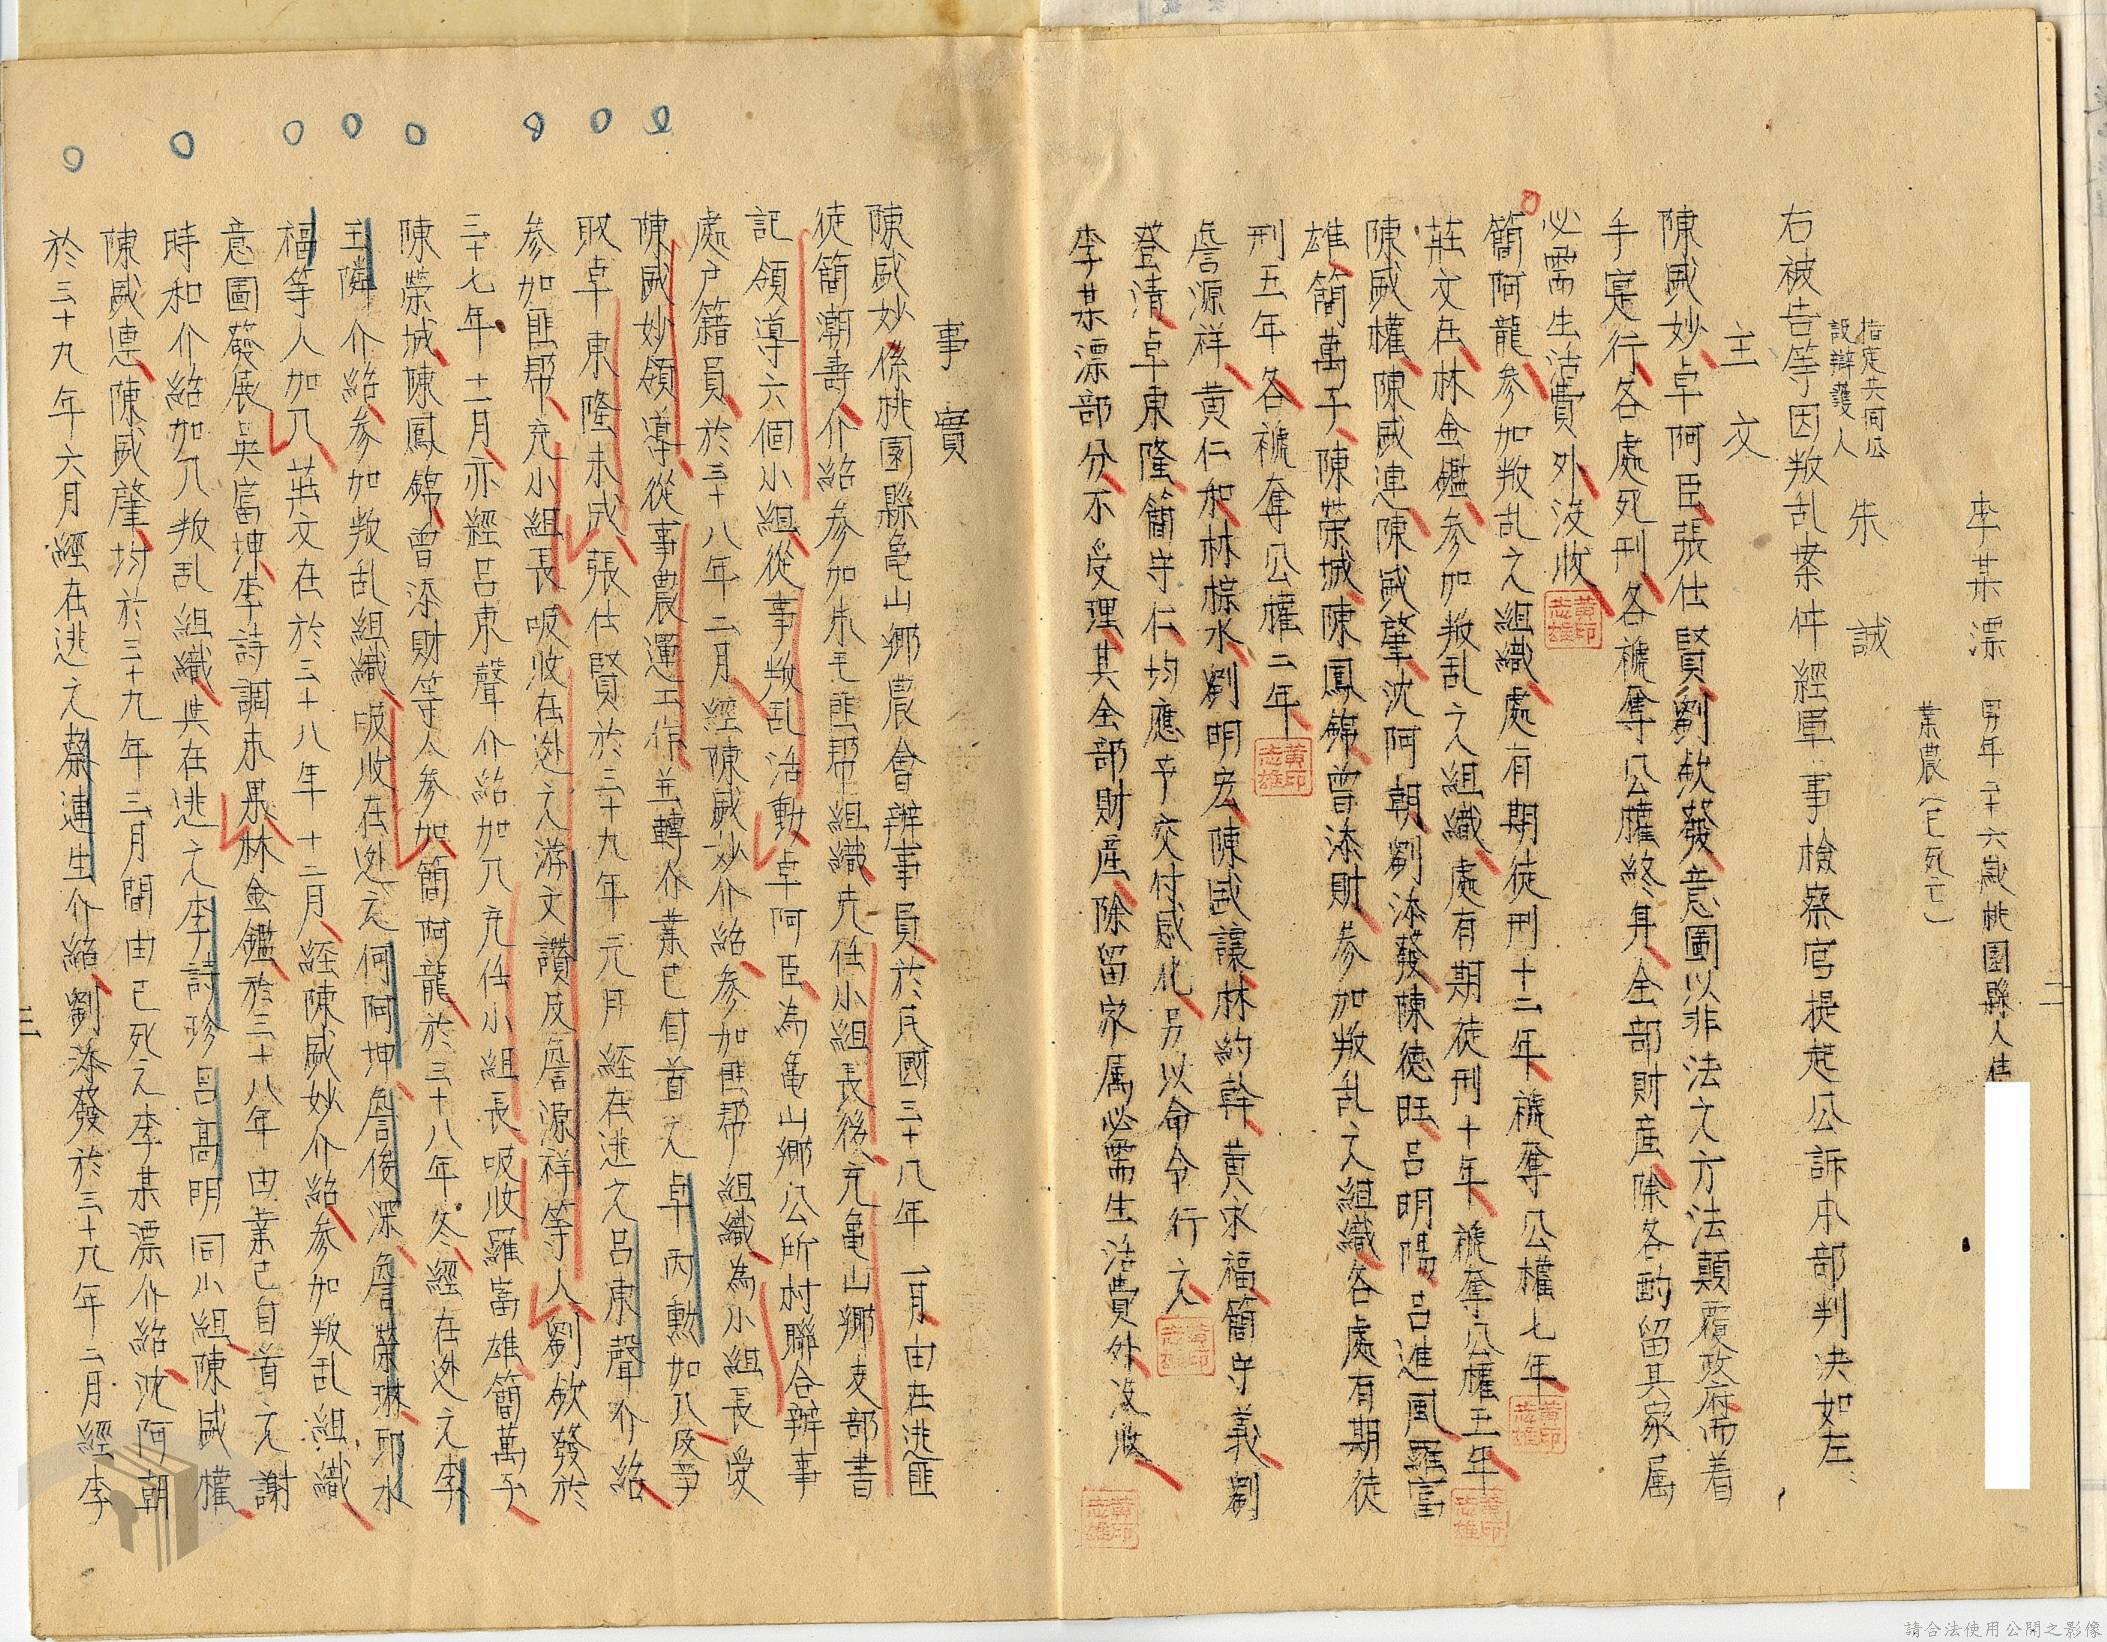 李某漂 男年二十六歲桃園縣人住
業農(已死亡)
指定共同公
設辯護人 朱誠
右被告等因叛乱案件經軍事檢察官提起公訴本部判决如左:
主文
陳威妙、卓阿臣、張仕賢、劉欽發、意圖以非法之方法顛覆政府而着
手寔行、各處死刑、各褫奪公權終身、全部財産、除各酌留其家属
必需生活費外沒收、
簡阿龍、參加叛乱之組織、處有期徒刑十二年、褫奪公權七年、
莊文在、林金鑑、參加叛乱之組織、處有期徒刑十年、褫奪公權五年、
陳威權、陳威連、陳威肇、沈阿朝、劉添發、陳德旺、呂明陽、呂進風、羅富
雄、簡萬子、陳榮城、陳鳳錦、曾添財、參加叛乱之組織、各處有期徒
刑五年、各褫奪公權二年、
詹源祥、黄仁和、林樑水、劉明宏、陳威讓、林約幹、黄永福、簡守義、劉
登清、卓東隆、簡守仁、均應予交付感化、另以命令行之、
李某漂部分、不受理、其全部財産、除留家属必需生活費外、沒收、
黄印志雄
黄印志雄
黄印志雄
黄印志雄
黄印志雄
黄印志雄
二
事實
陳威妙、係桃園縣龜山鄉農會辦事員、於民國三十八年一月、由在逃匪
徒簡潮壽、介紹參加朱毛匪幫組織、充任小組長後、充龜山鄉支部書
記、領導六個小組、從事叛乱活動、卓阿臣為龜山鄉公所村聯合辦事
處户籍員、於三十八年二月、經陳威妙介紹、參加匪幫組織、為小組長、受
陳威妙領導、從事農運工作、並轉介業已自首之卓丙勲加入、及爭
取卓東隆未成、張仕賢於三十九年元月經在逃之呂東聲介紹、
參加匪幫、充小組長、吸收在逃之游文讚及詹源祥等人、劉欽發於
三十七年十一月、亦經呂東聲介紹加入、充任小組長、吸收羅富雄、簡萬子、
陳榮城、陳鳳錦、曾添財等人參加、簡阿龍、於三十八年冬、經在逃之李
玉隣介紹、參加叛乱組織、吸收在逃之何阿坤、詹俊深、詹榮琳、邱水
福等人加入、莊文在於三十八年十二月、經陳威妙介紹、參加叛乱組織、
意圖發展吳富坤、李詩調未果、林金鑑、於三十八年由業已自首之謝
時和介紹加入叛乱組織、與在逃之李詩珍、呂高明同小組、陳威權、
陳威連、陳威肇、均於三十九年三月間由已死之李某漂介紹、沈阿朝
於三十九年六月經在逃之蔡連生介紹、劉添發於三十九年二月經李
三
請合法使用公開之影像